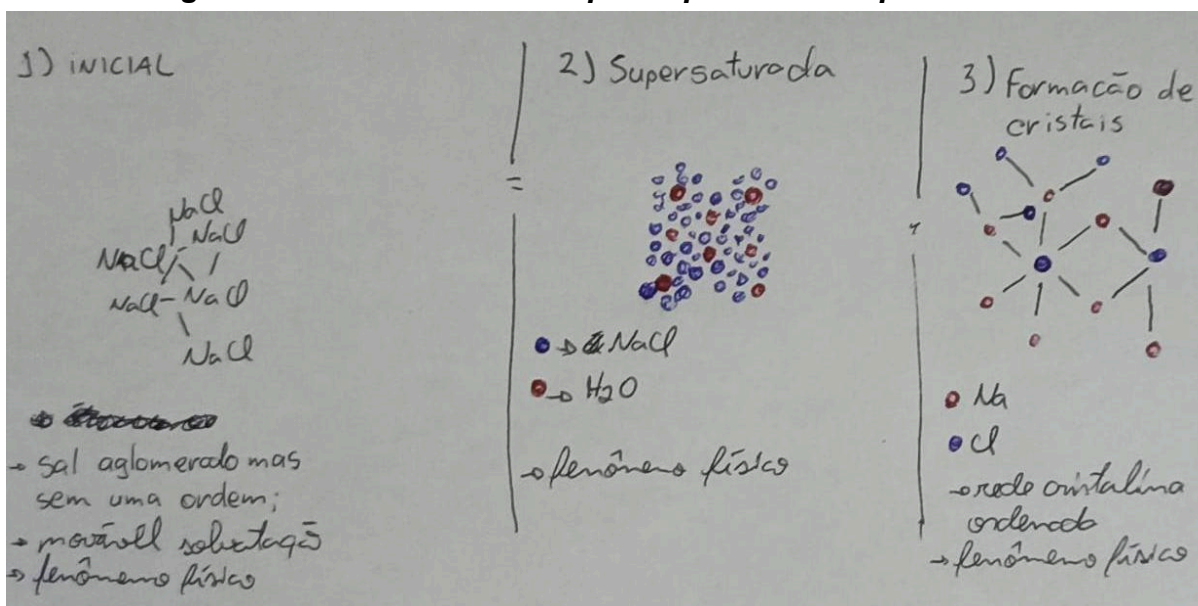 1) INICIAL
NaCl
NaCl
NaCl
NaCl - NaCl
NaCl
→ sal aglomerado mas
sem uma ordem;
→ solvatação
→ fenômeno físico
2) Supersaturada
→ NaCl
→ H2O
→ fenômeno físico
3) Formação de
cristais
Na
Cl
→ rede cristalina
ordenada
→ fenômeno físico